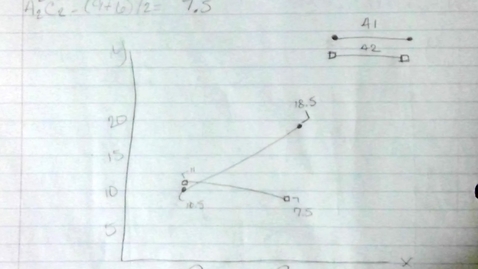 A₂C₂ = (9+6)/2 = 7.5
A1
A2
y
18.5
20
15
11
10
10.5
7.5
5
x